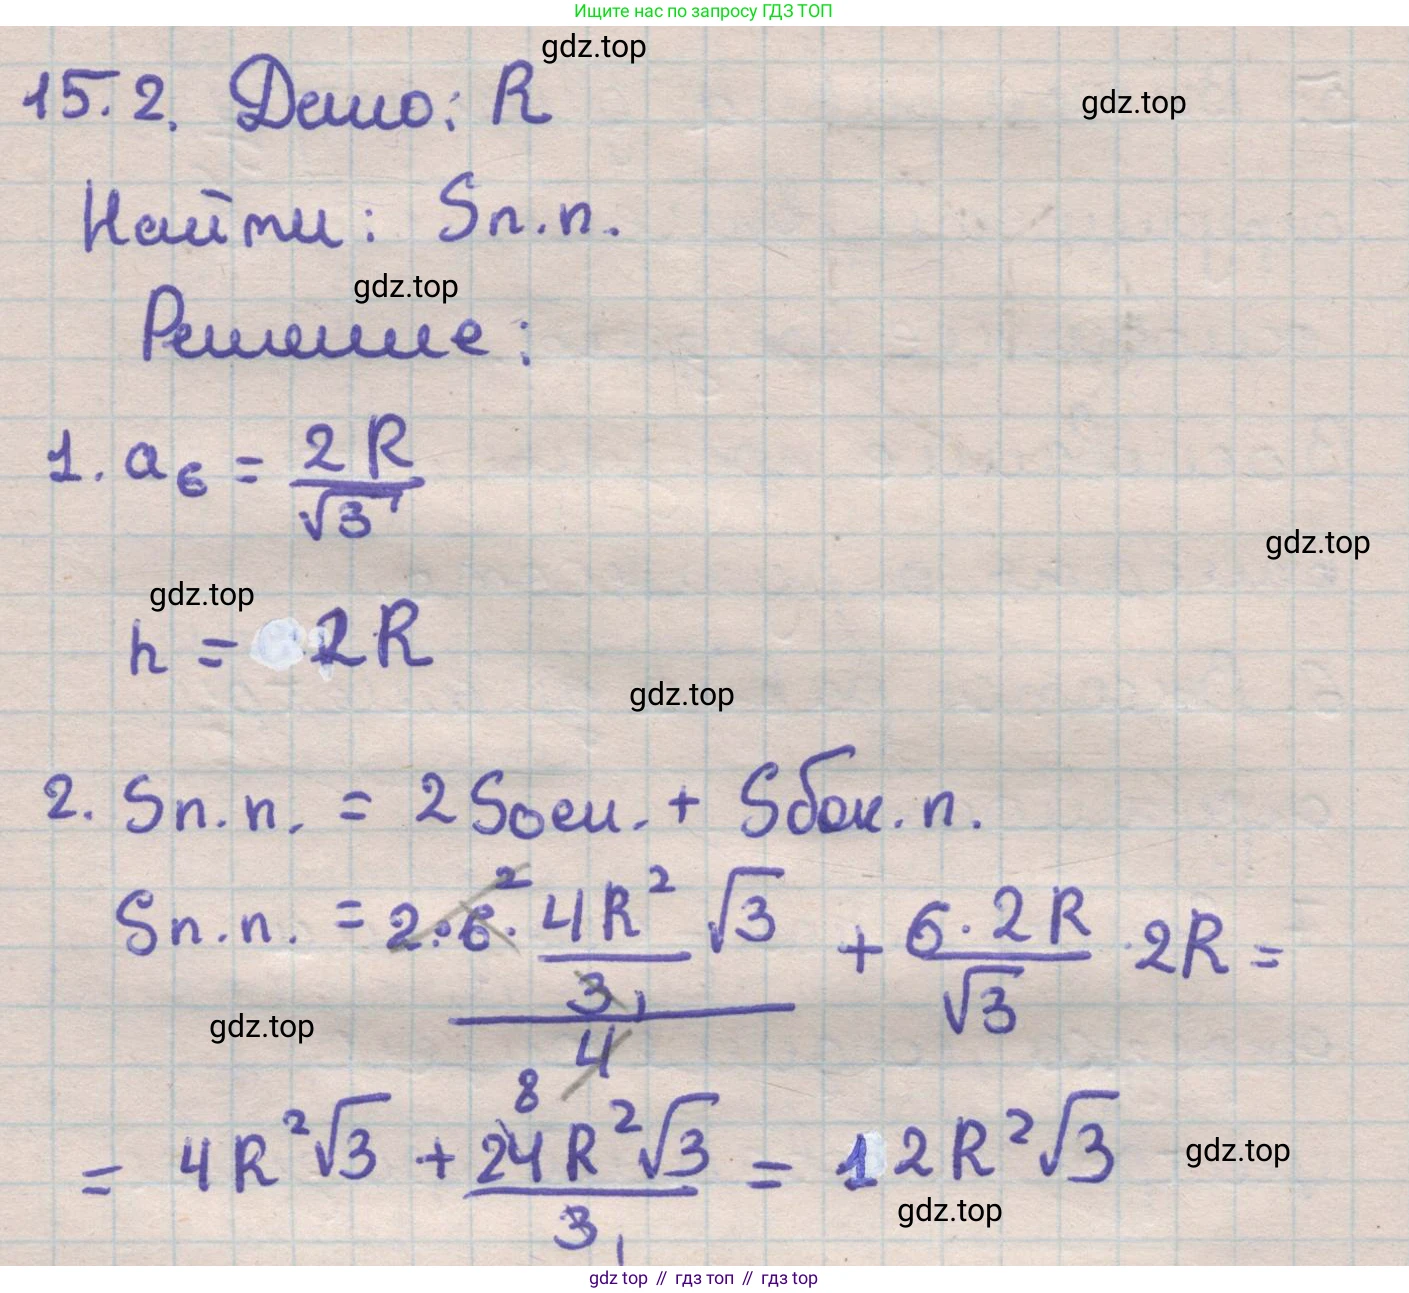 Ищите нас по запросу ГДЗ ТОП
gdz.top
15.2. Дано: R
gdz.top
Найти: Sп.п.
gdz.top
Решение:
1. a₆ = 2R/√3
gdz.top
gdz.top
h = 2R
gdz.top
2. Sп.п. = 2Sосн. + Sбок.п.
Sп.п. = 2·6· ((4R²/3)√3)/4 + (6·2R/√3)·2R =
gdz.top
= 4R²√3 + 24R²√3/3 = 12R²√3
gdz.top
gdz.top
gdz top // гдз топ // гдз top